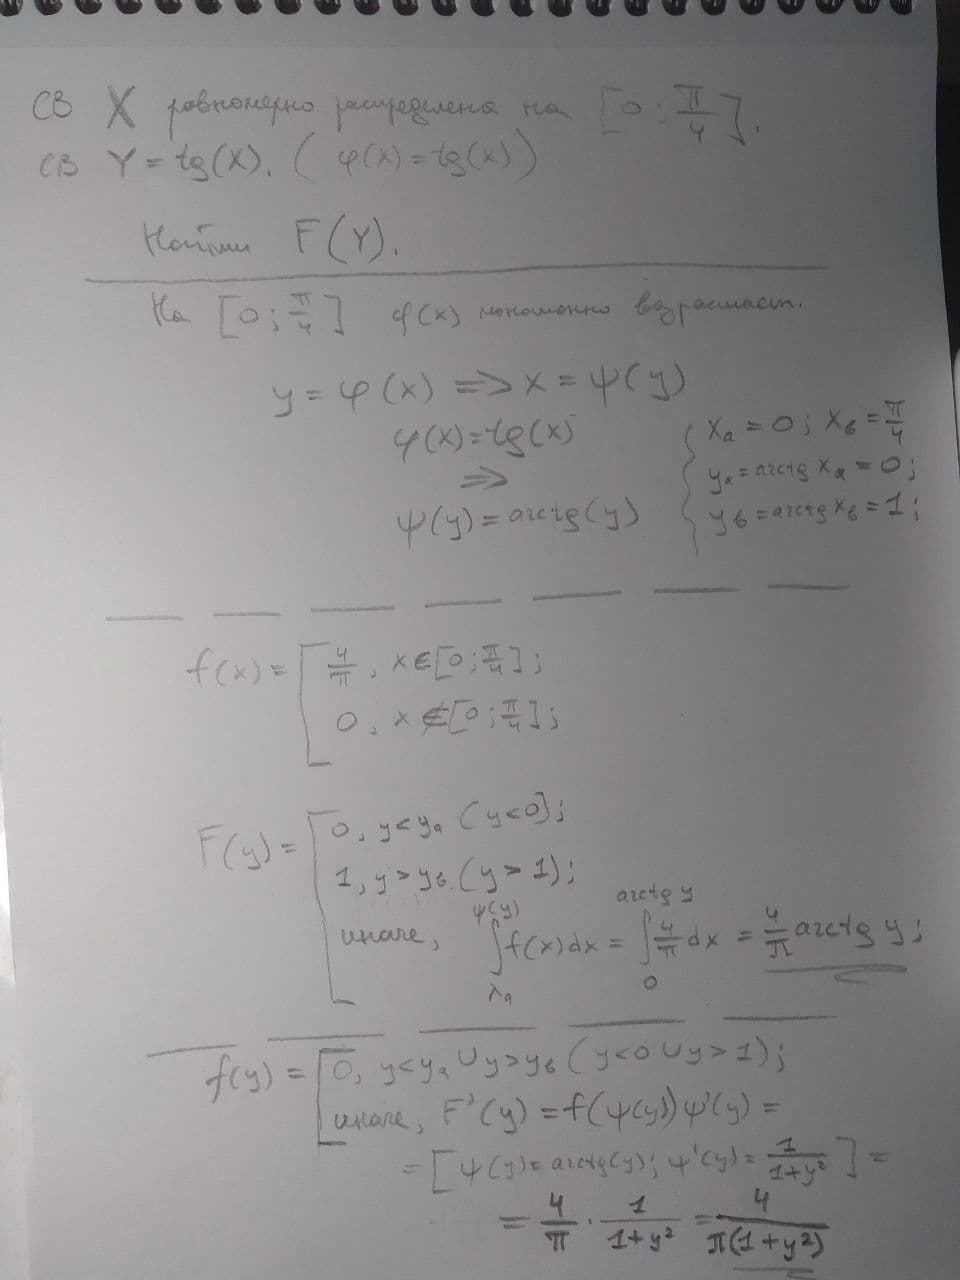 СВ X равномерно распределена на [0; π/4].
СВ Y = tg(X). ( φ(x) = tg(x) )
Найти F(Y).
На [0; π/4] φ(x) монотонно возрастает.
y = φ(x) => x = ψ(y)
φ(x) = tg(x)
=>
ψ(y) = arctg(y)
{ xa = 0; xб = π/4
ya = arctg xa = 0;
yб = arctg xб = 1;
f(x) = [ 4/π, x∈[0; π/4];
0, x∉[0; π/4];
F(y) = [ 0, y<ya (y<0);
1, y>yб. (y>1);
иначе, ∫_{xa}^{ψ(y)} f(x)dx = ∫_0^{arctg y} 4/π dx = 4/π arctg y;
f(y) = [ 0, y<ya ∪ y>yб (y<0 ∪ y>1);
иначе, F'(y) = f(ψ(y)) ψ'(y) =
= [ ψ(y) = arctg(y); ψ'(y) = 1/(1+y²) ] =
= 4/π · 1/(1+y²) = 4/(π(1+y²))